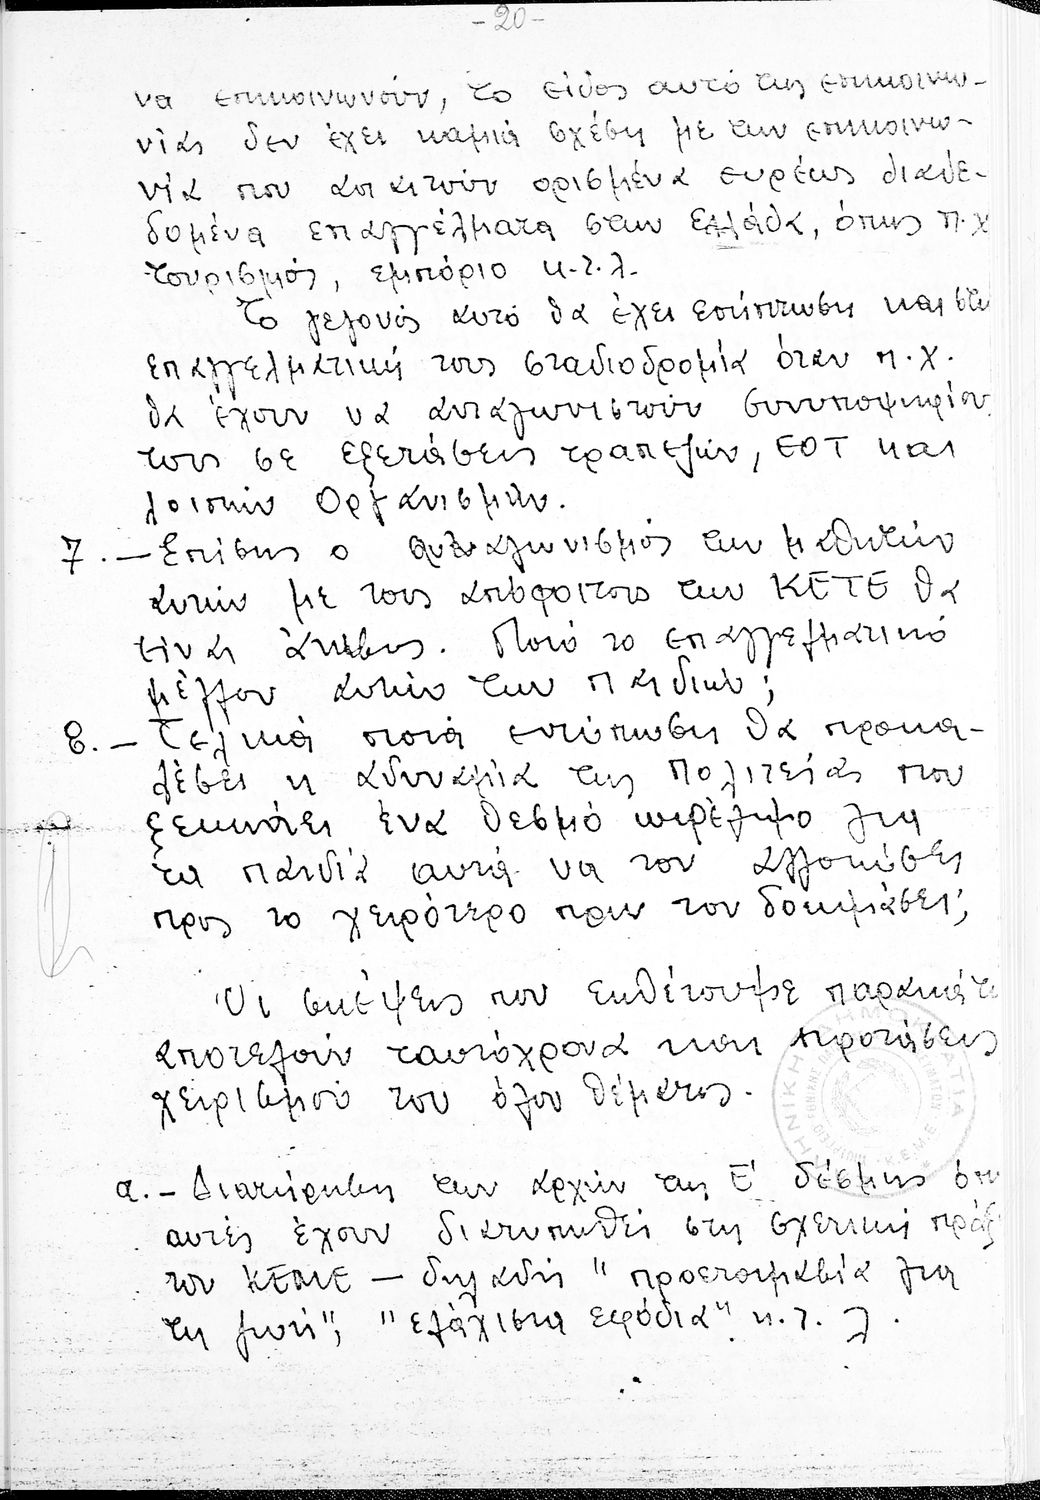 -20-
να επικοινωνούν, το είδος αυτό της επικοινω-
νίας δεν έχει καμιά σχέση με την επικοινω-
νία που απαιτούν ορισμένα ευρέως διαδε-
δομένα επαγγέλματα στην Ελλάδα, όπως π.χ
τουρισμός, εμπόριο κ.τ.λ.
Το γεγονός αυτό θα έχει επίπτωση και στη
επαγγελματική τους σταδιοδρομία όταν π.χ.
θα έχουν να ανταγωνιστούν συνυποψηφίους
τους σε εξετάσεις τραπεζών, ΕΟΤ και
λοιπών Οργανισμών.
7.- Επίσης ο συναγωνισμός των μαθητών
αυτών με τους απόφοιτους των ΚΕΤΕ θα
είναι άνισος. Ποιό το επαγγελματικό
μέλλον αυτών των παιδιών;
8.- Τελικά ποιά εντύπωση θα προκα-
λέσει η αδυναμία της Πολιτείας που
ξεκινάει ένα θεσμό ωφέλιμο για
τα παιδιά αυτά να τον αλλοιώσει
προς το χειρότερο πριν τον δοκιμάσει;
Οι σκέψεις που εκθέτουμε παρακάτω
αποτελούν ταυτόχρονα και προτάσεις
χειρισμού του όλου θέματος.
α.- Διατήρηση των αρχών της Ε' δέσμης όπ
αυτές έχουν διατυπωθεί στη σχετική πράξ
του ΚΕΜΕ - δηλαδή " προετοιμασία για
τη ζωή", "ελάχιστα εφόδια" κ.τ.λ.